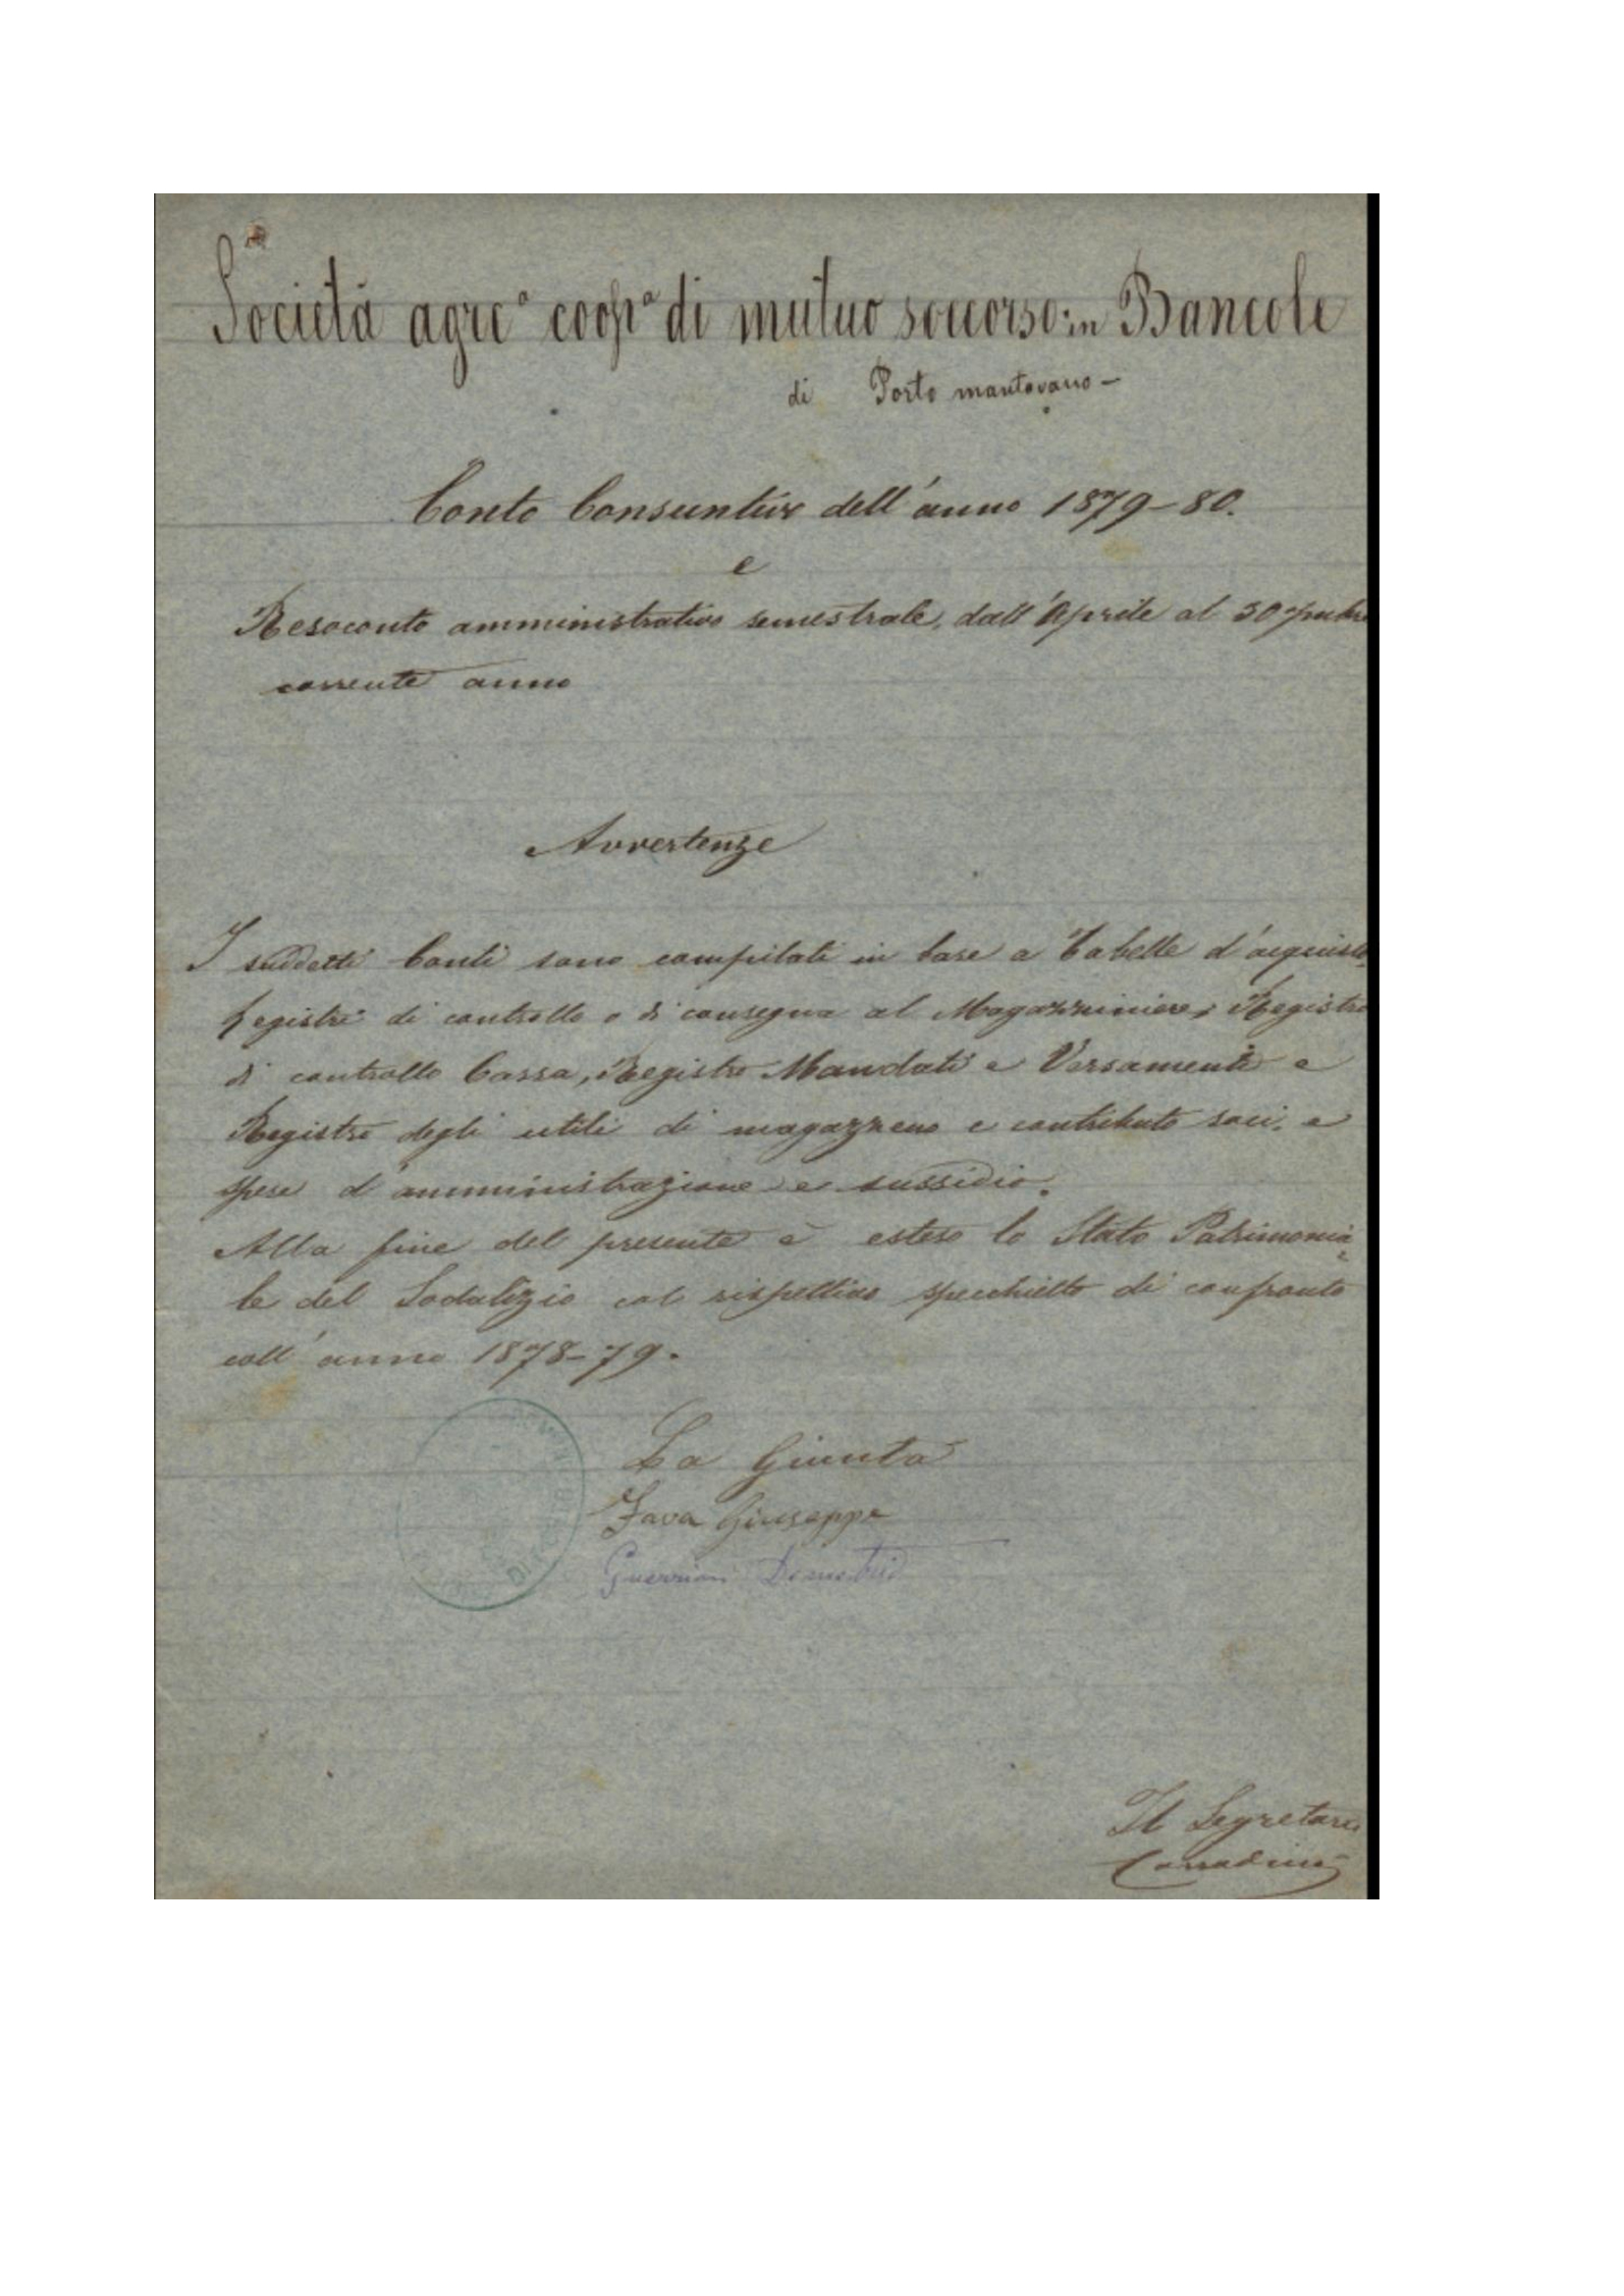 Società agrcª coopª di mutuo soccorso in Bancole
di Porto mantovano –
Conto Consuntivo dell'anno 1879–80.
e
Resoconto amministrativo semestrale, dall'Aprile al 30
corrente anno
Avvertenze
I suddetti Conti sono compilati in base a Tabelle d'acquisto
Registri di controllo e di consegna al Magazziniere, Registro
di controllo Cassa, Registro Mandati e Versamenti e
Registro degli utili di magazzeno e contributo soci, e
spese d'amministrazione e sussidio.
Alla fine del presente è esteso lo Stato Patrimonia-
le del Sodalizio col rispettivo specchietto di confronto
coll'anno 1878–79.
La Giunta
Fava Giuseppe
Guerrieri Demetrio
Il Segretario
Corradini